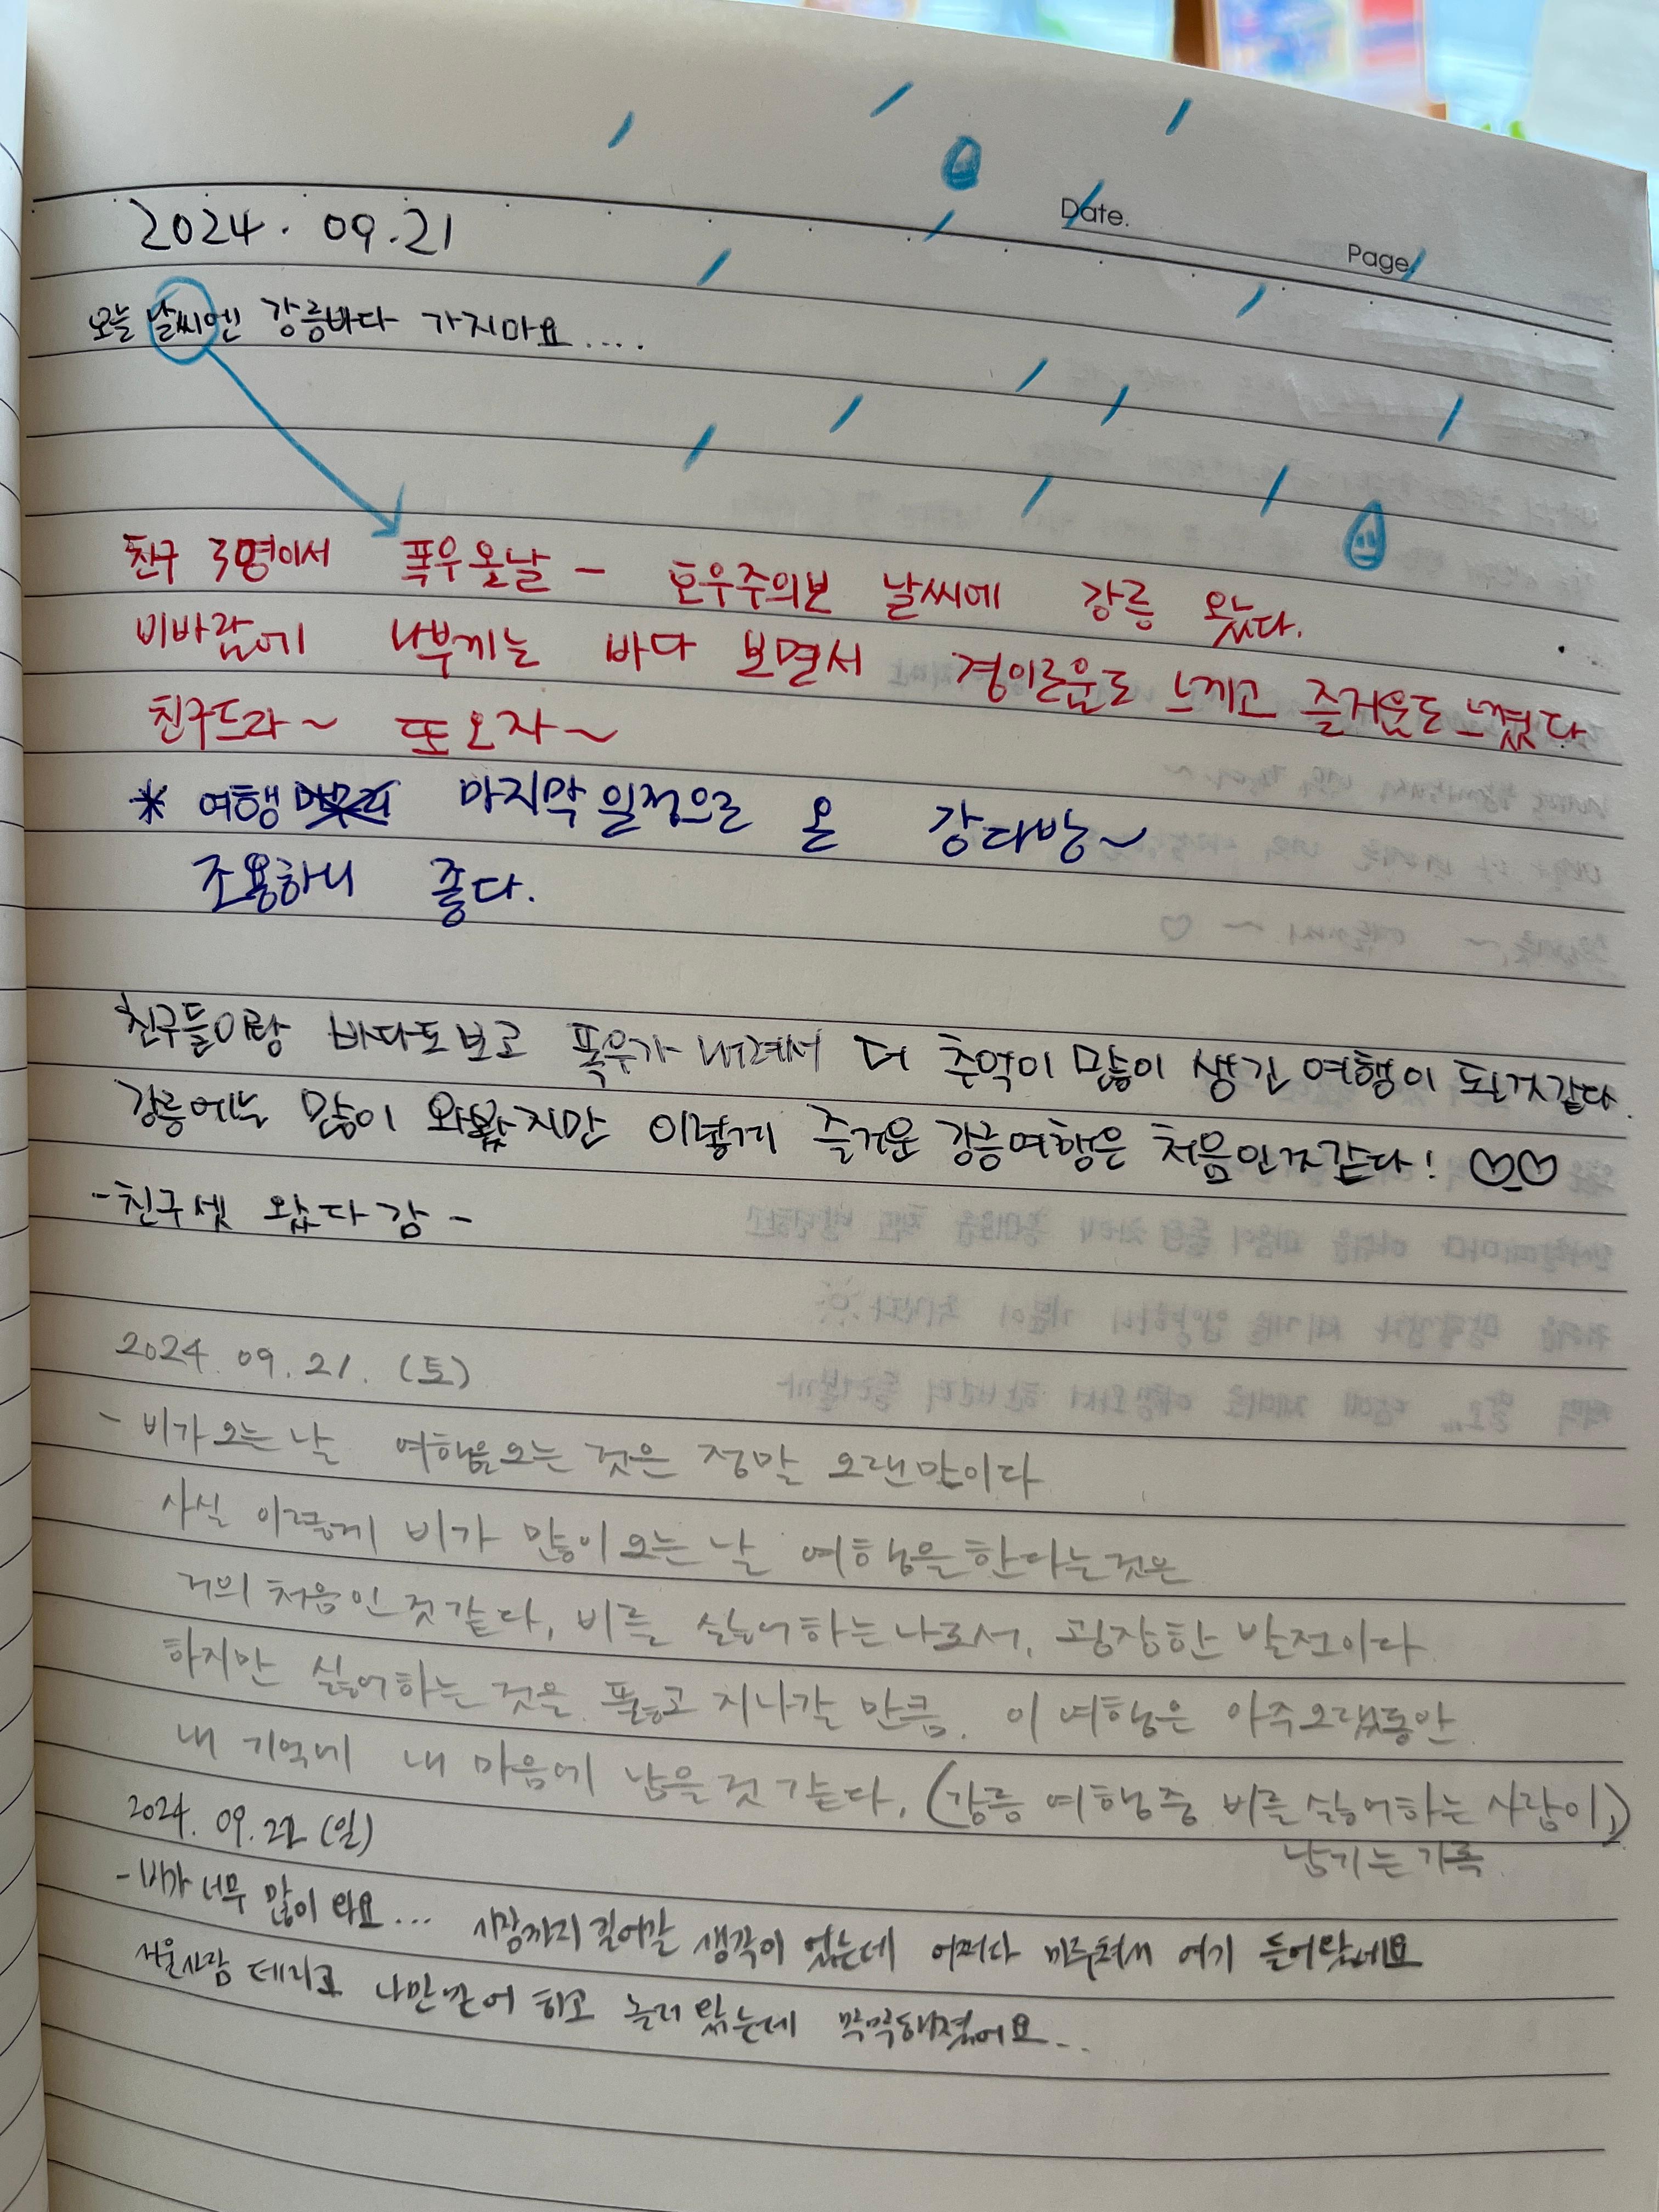 Date.
Page
2024. 09.21
오늘 날씨엔 강릉바다 가지마요....
친구 3명이서 폭우온날 - 호우주의보 날씨에 강릉 왔다.
비바람에 나부끼는 바다 보면서 경이로움도 느끼고 즐거움도 느꼈다
친구드라~ 또 오자~
* 여행 마지막 일정으로 온 강다방~
조용하니 좋다.
친구들이랑 바다도보고 폭우가 내려서 더 추억이 많이 생긴 여행이 된것같다.
강릉에는 많이 와봤지만 이렇게 즐거운 강릉여행은 처음인것같다!
-친구셋 왔다감-
2024. 09. 21. (토)
- 비가오는 날 여행을오는 것은 정말 오랜만이다
사실 이렇게 비가 많이오는 날 여행을한다는것은
거의 처음인것같다, 비를 싫어하는나로서, 굉장한 발전이다
하지만 싫어하는 것을 품고 지나갈 만큼, 이 여행은 아주오랫동안
내 기억에 내 마음에 남을것 같다. (강릉 여행중 비를싫어하는 사람이)
남기는 기록
2024. 09. 22 (일)
- 비가 너무 많이 와요... 시장까지 걸어갈 생각이 었는데 어쩌다 마주쳐서 여기 들어왔네요
서울사람 데리고 나만믿어 하고 놀러 왔는데 막막해졌어요...